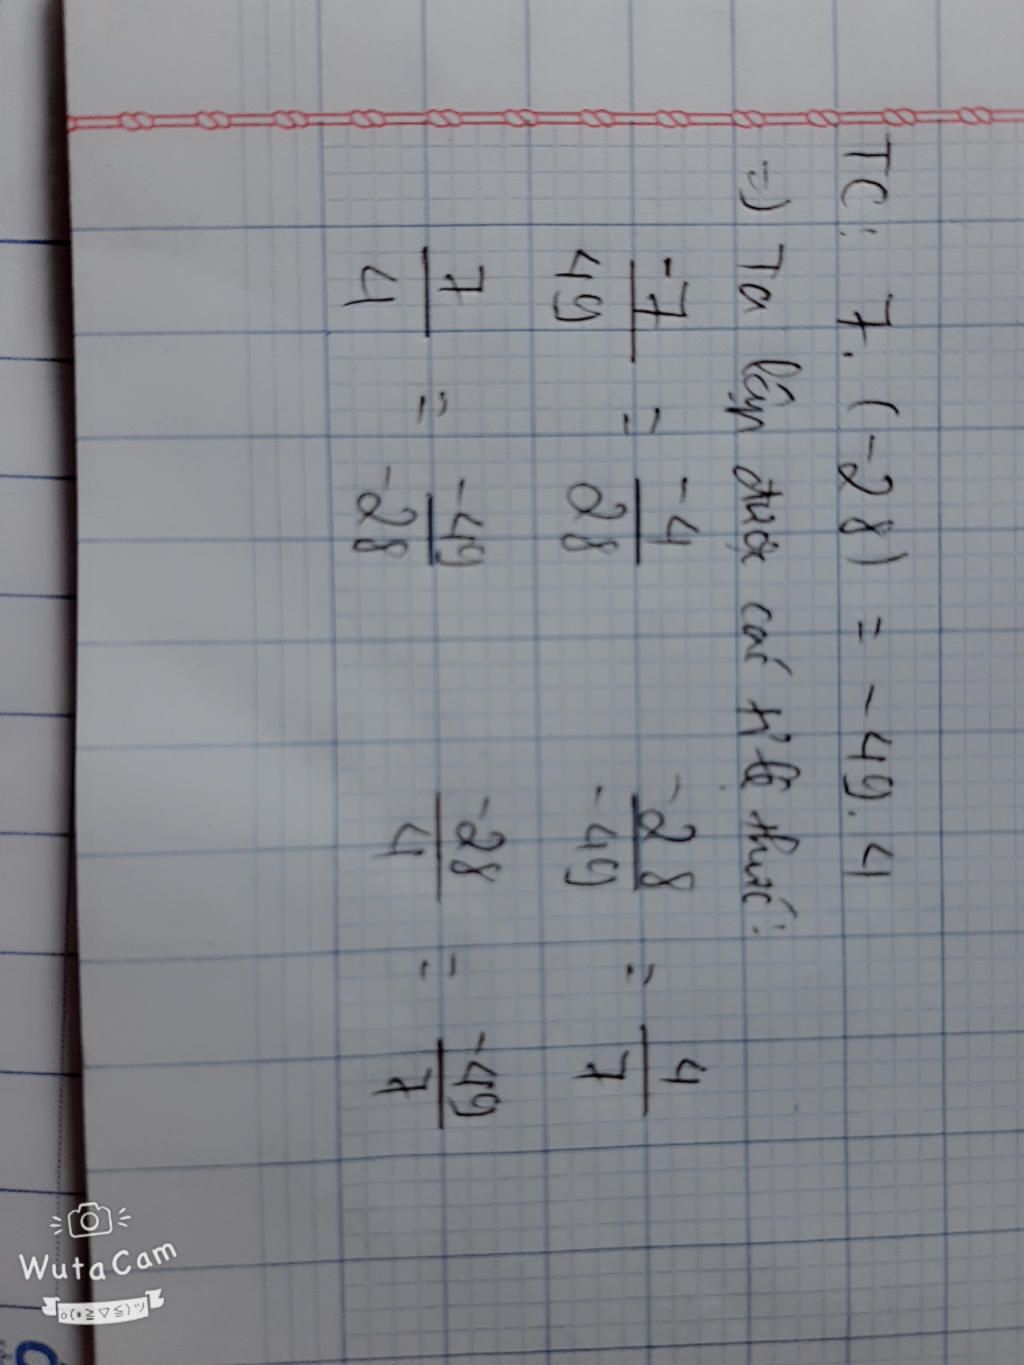 TC: 7. (-28) = -49.4
=) Ta lập được các tỉ lệ thức:
-7/49 = -4/28   -28/-49 = 4/7
7/4 = -49/-28   -28/4 = -49/7
WutaCam